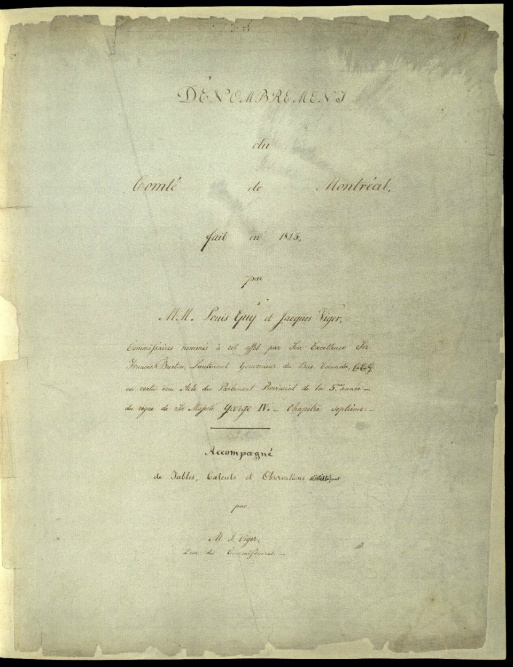 DÉNOMBREMENT
du
Comté de Montréal,
fait en 1825,
par
M.M. Louis Guy et Jacques Viger,
Commissaires nommés à cet effet par Son Excellence Sir
Francis Burton, Lieutenant Gouverneur du Bas Canada, &&&,
en vertu d'un Acte du Parlement Provincial de la 5.me année
du règne de Sa Majesté George IV. — Chapitre septième. —
Accompagné
de Tables, Calculs et Observations
par
M. J. Viger,
L'un des Commissaires. —